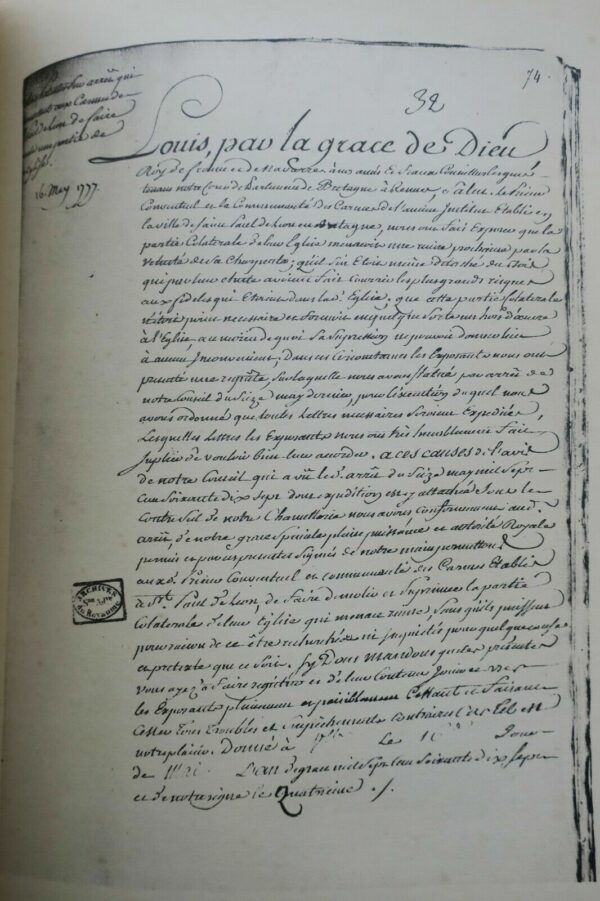 74.
32
arrêt qui
aux Carmes de
de Leon de faire
une partie de
16 May 1777.
Louis, par la grace de Dieu
Roy de france et de Navarre, a nos amés Et feaux Conseillers les gens
tenans notre Cour de Parlement de Bretagne a Rennes, Salut. Le Prieur
Conventuel et la Communauté des Carmes de l'ancien Institut Etablis en
la ville de Saint Paul de Leon en Bretagne, nous ont fait Exposer que la
partie Colaterale de leur Eglise menaçoit une ruine prochaine par la
vetusté de sa Charpente; qu'il s'en Etoit même détaché du Bois
qui par leur chute avoient fait courrir les plus grands risques
aux fideles qui Etoient dans lad. Eglise; que cette partie Colaterale
n'étoit point necessaire et formoit en quelque sorte un hors d'œuvre
à l'Eglise au moien de quoi la Supression ne pouvoit donner lieu
à aucun Inconvenient; Dans ces circonstances les Exposants nous ont
presenté une requête sur laquelle nous avons statué par arrêt de
notre Conseil du Seize may dernier, pour l'éxecution duquel nous
avons ordonné que toutes Lettres necessaires seroient Expediées,
Lesquelles Lettres les Exposants nous ont très humblement fait
suplier de vouloir bien leur accorder. a ces causes de l'avis
de notre Conseil qui a vû led. arrêt du Seize may mil Sept
Cent Soixante dix Sept dont expedition est cy attachée Sous le
Contre Scel de notre Chancellerie nous avons Conformement aud.
arrêt, de notre grace Speciale pleine puissance et autorité Royale
permis et par ces presentes Signées de notre main permettons
aux d. Prieur Conventuel et communauté des Carmes Etablis
à St. Paul de Leon, de faire demolir et Suprimer la partie
Colaterale de leur Eglise qui menace ruine, Sans qu'ils puissent
pour raison de ce être recherchés ni inquietés pour quelque cause
et pretexte que ce soit. Sy Vous Mandons que ces presentes
vous ayez à faire registrer et de leur Contenu Jouir et user
les Exposants pleinement et paisiblement Cessant et faisant
Cesser tous troubles et Empêchements contraires Car tel est
notre plaisir. Donné à Le Jour
de L'an de grace mil Sept Cent Soixante dix Sept
et de notre regne le Quatrieme ./.
ARCHIVES
du Royaume